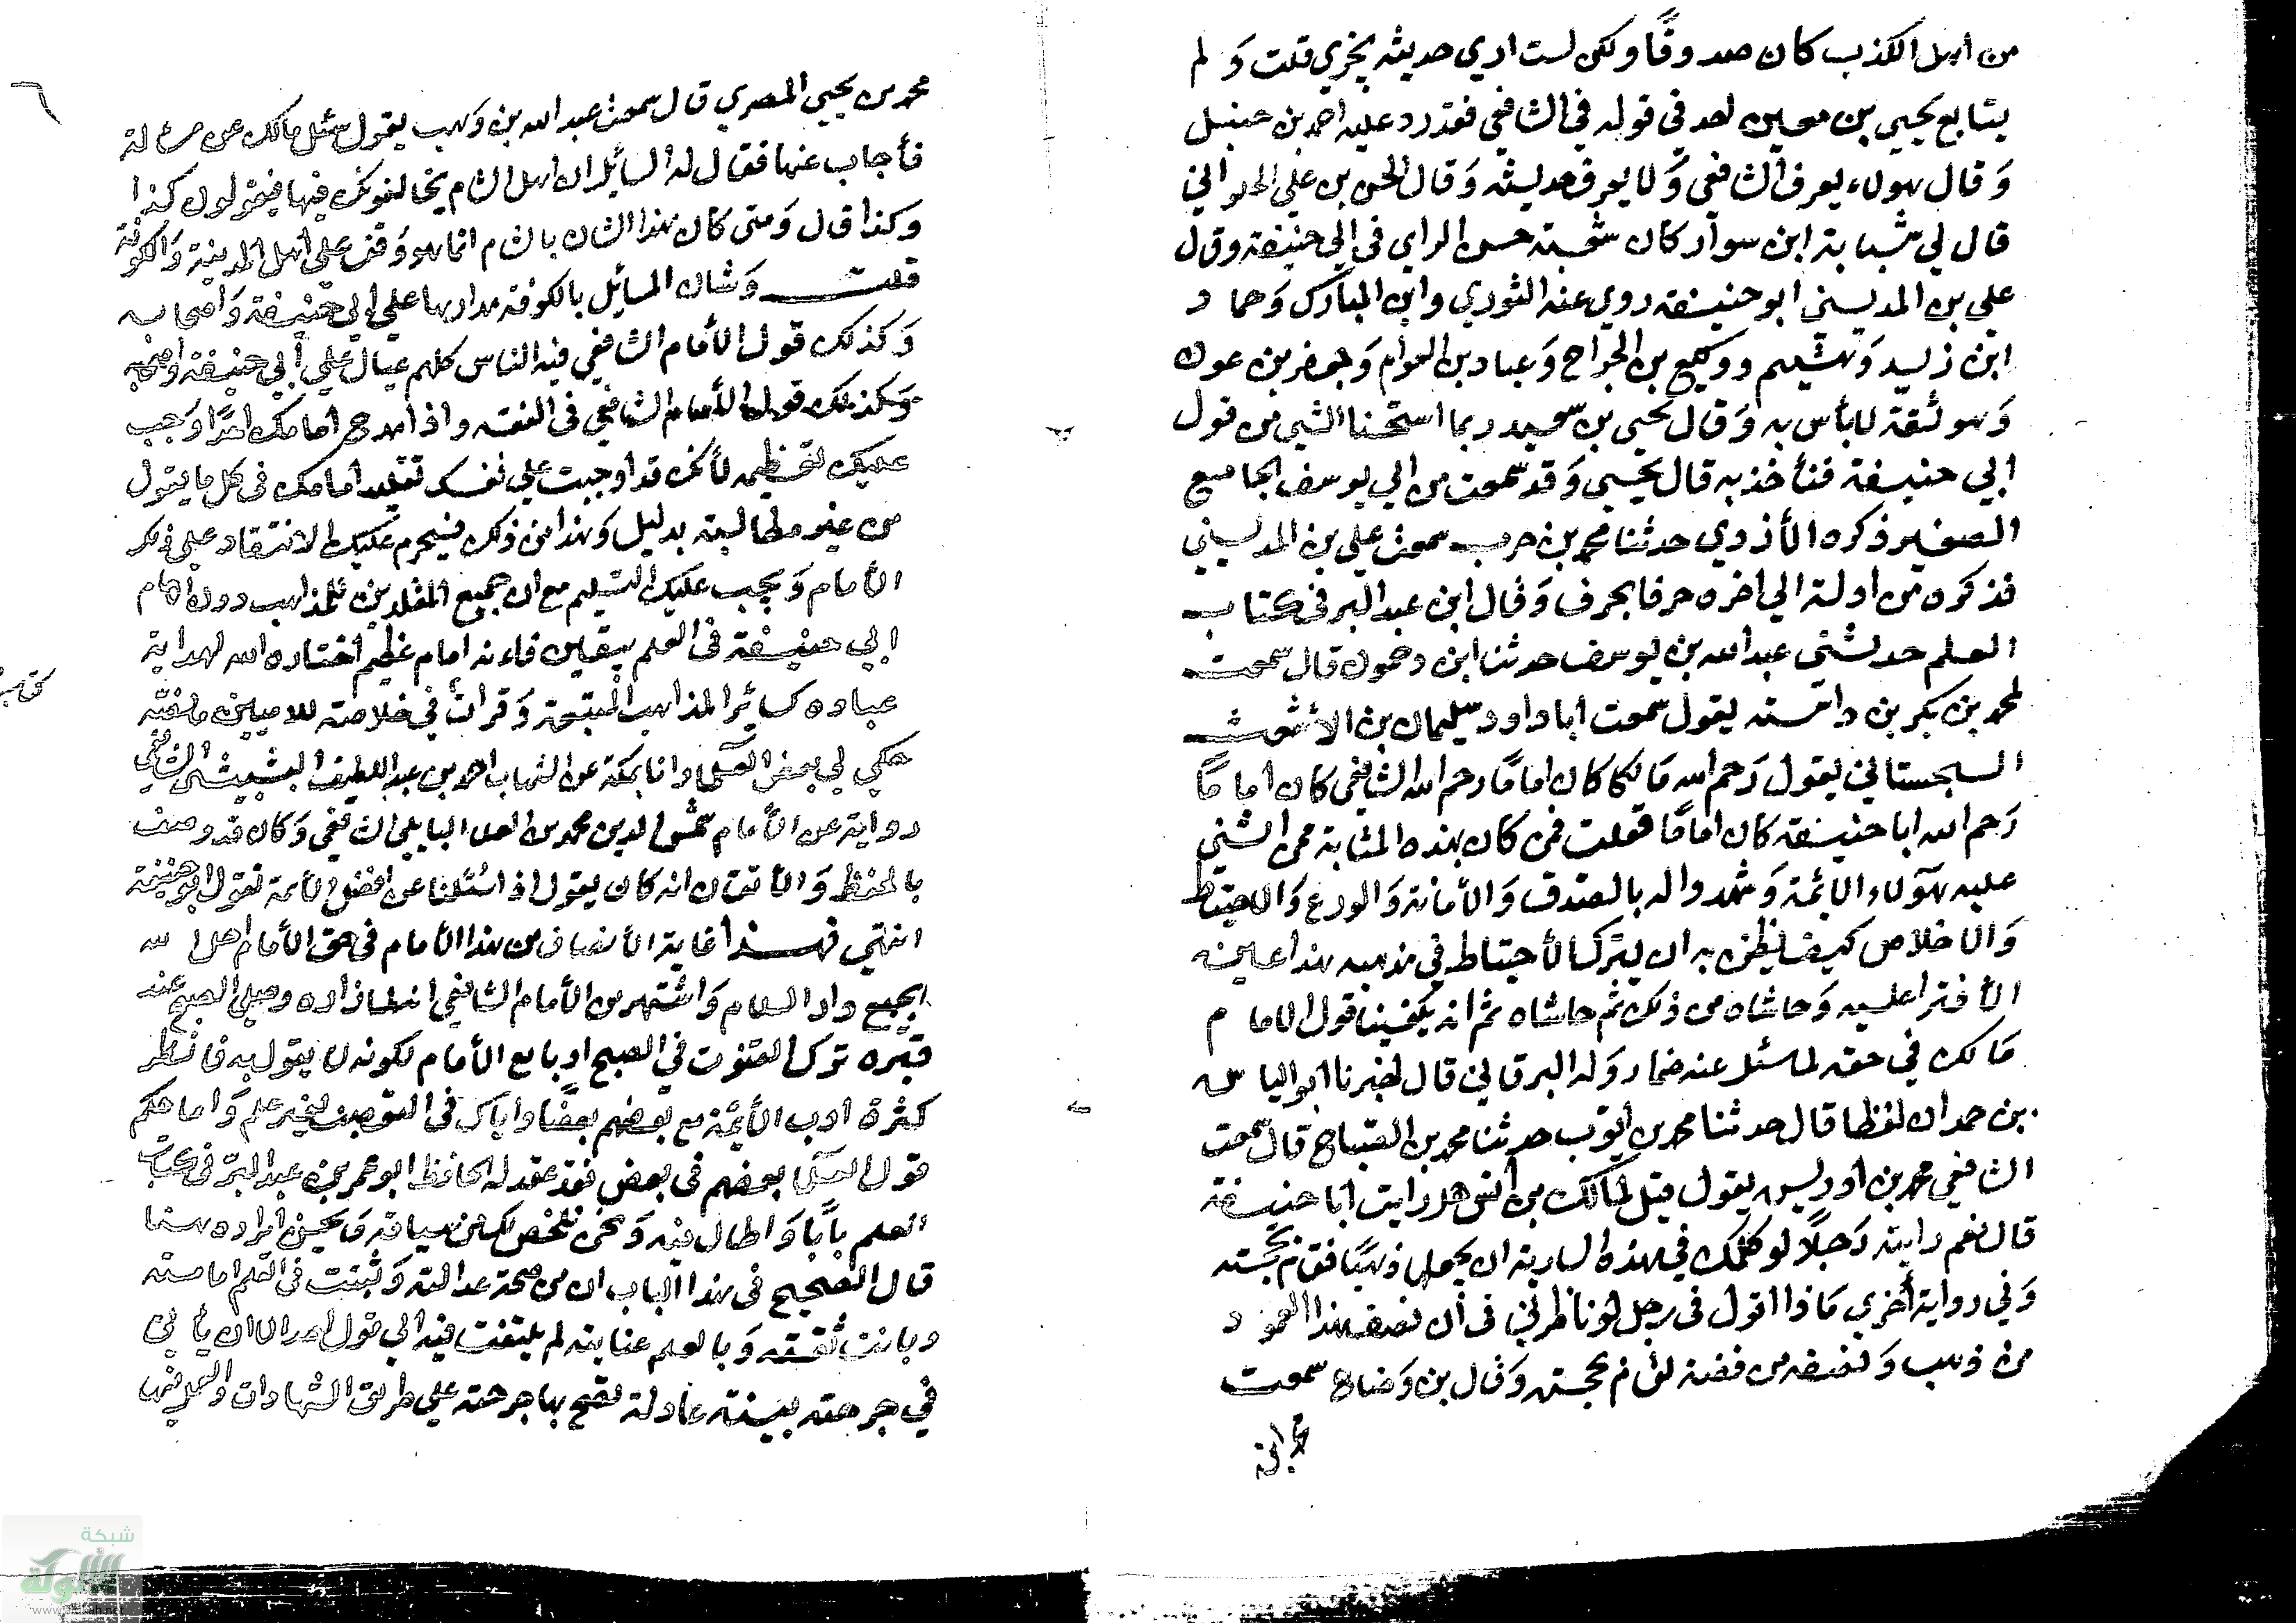 من اهل الكذب كان صدوقًا ولكن لست اري حديثه يجزي قلت وَلم
يتابع يحيي بن معين احد في قوله في الشافعي فقد رد عليه احمد بن حنبل
وَقال هولاء يعرف الشافعي وَلا يعرف حديثه وَقال الحسن بن علي الحلواني
قال لي شبابة ابن سوار كان شعبة حسن الراي في ابي حنيفة وقال
علي بن المديني ابو حنيفة روي عنه الثوري وابن المبارك وَحماد
ابن زيد وَهشيم ووكيع بن الجراح وَعباد بن العوام وَجعفر بن عون
وَهو ثقة لا بأس به وَقال يحيي بن سعيد ربما استحسنا الشي من قول
ابي حنيفة فنأخذ به قال يحيي وَقد سمعت من ابي يوسف الجامع
الصغير ذكره الأزدي حدثنا محمد بن حرب سمعت علي بن المديني
فذكره من اوله الي اخره حرفا بحرف وَقال ابن عبد البر في كتاب
العلم حدثني عبد الله بن يوسف حدثنا ابن دحمون قال سمعت
محمد بن بكر بن داسته يقول سمعت ابا داود سليمان بن الأشعث
السجستاني يقول رَحم الله مَالكا كان امامًا رحم الله الشافعي كان امامًا
رَحم الله ابا حنيفة كان امامًا قلت فمن كان بهذه المثابة ممن اثني
عليه هؤلاء الائمة وَشهدوا له بالصدق وَالأمانة وَالورع وَالاحتياط
وَالاخلاص كيف يظن به ان يترك الأحتياط في مذهبه هذا عين
الأفترا عليه وَحاشاه من ذلك ثم حاشاه ثم انه يكفينا قول الامام
مَالك في حقه لما سئل عنه فيما روَاه البرقاني قال اخبرنا ابو العباس
بن حمدان لفظا قال حدثنا محمد بن ايوب حدثنا محمد بن الصباح قال سمعت
الشافعي محمد بن ادريس يقول قيل لمالك بن أنس هل رايت ابا حنيفة
قال نعم رايته رَجلًا لو كلمك في هذه السارية ان يجعلها ذهبًا لقام بحجته
وَفي رواية أخري مَاذا اقول في رجل لو ناظرني في أن نصف هذا العمود
من ذهب وَنصفه من فضة لقام بحجته وَقال بن وَضاح سمعت
محمد بن يحيي المصري قال سمعت عبد الله بن وَهب يقول سئل مالك عن مسالة
فأجاب عنها فقال له السائل ان اهل الشام يخالفونك فيها فيقولون كذا
وَكذا قال وَمتي كان هذا الشان بالشام انما هو وَقف علي اهل المدينة وَالكوفة
قلت وَشان المسائل بالكوفة مدارها علي ابي حنيفة وَاصحابه
وَكذلك قول الأمام الشافعي فيه الناس كلهم عيال علي أبي حنيفة
وَكذلك قول الأمام الشافعي في الفقه واذا مدح امامك احدًا وَجب
عليك تعظيمه لأنك قد اوجبت علي نفسك تقليد امامك في كل ما يقول
من غير مطالبته بدليل وَهذا من ذلك فيحرم عليك الانتقاد علي ذلك
الأمام وَيجب عليك التسليم مع ان جميع المقلدين للمذاهب دون امام
ابي حنيفة في العلم بيقين فاءنه امام عظيم اختاره الله لهداية
عباده كسائر المذاهب المتبعة وَقرات في خلاصة للاميني ما نصه
حكي لي بعض العلما وانا بمكة عن الشهاب احمد بن عبد اللطيف البشبيشي الشافعي
رواية عن الأمام شمس الدين محمد بن العلا البابلي الشافعي وَكان قد وصف
بالحفظ وَالأتقان انه كان يقول اذا سئلنا عن افضل الأئمة نقول ابو حنيفة
انتهي فهذا غاية الأنصاف من هذا الأمام في حق الأمام احل الله
الجميع دار السلام وَاشتهر من الأمام الشافعي انه لما زاره وصلي الصبح عند
قبره ترك القنوت في الصبح ادبا مع الأمام لكونه لا يقول به فانظر
كثرة ادب الأئمة مع بعضهم بعضًا واياك في التعصب لغير علم وَاما حكم
قول العلما بعضهم في بعض فقد عقد له الحافظ ابو عمر بن عبد البر في كتاب
العلم بابًا وَاطال فيه وَنحن نلخص لك من سياقه مَا يحسن ايراده هنا
قال الصحيح في هذا الباب ان من صحة عدالته وَثبتت في العلم امامته
وبانت ثقته وَبالعلم عنايته لم يلتفت فيه الي قول احد الا ان يأتي
في جرحته ببينة عادلة تصح بها جرحته علي طريق الشهادات والعمل فيها
شبكة
الألوكة
www.alukah.net